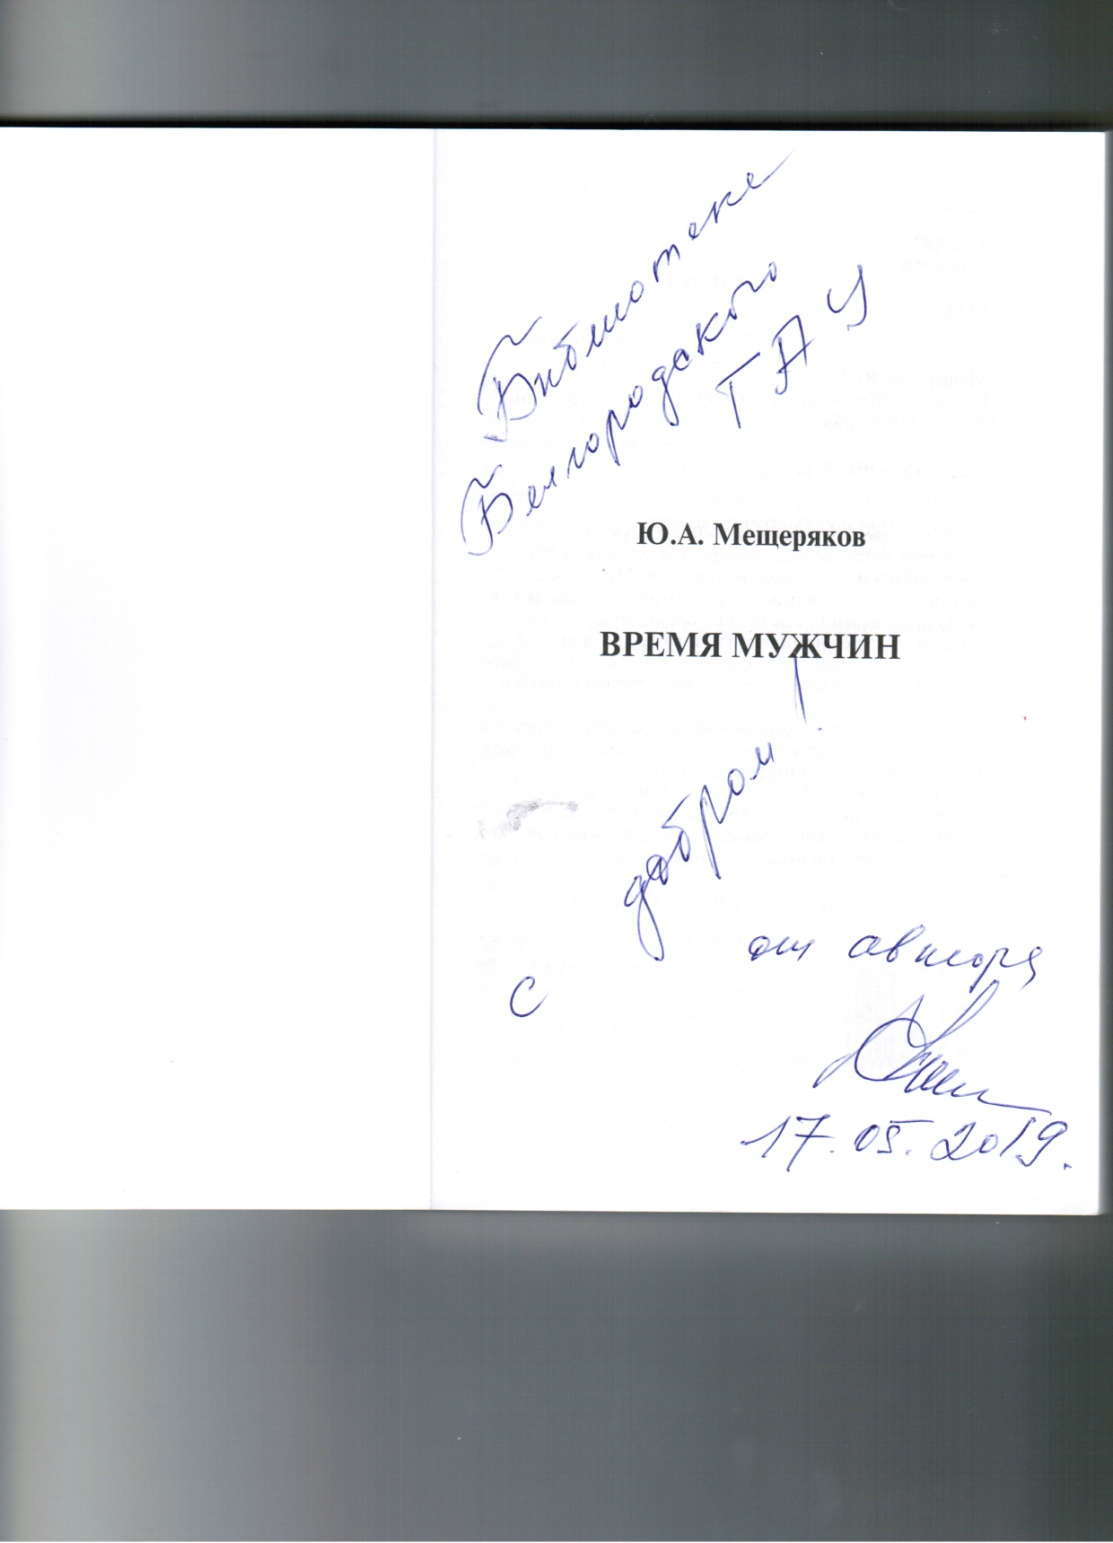 Библиотеке
Белгородского
ГАУ
Ю.А. Мещеряков
ВРЕМЯ МУЖЧИН
с добром!
от автора
17.05.2019.